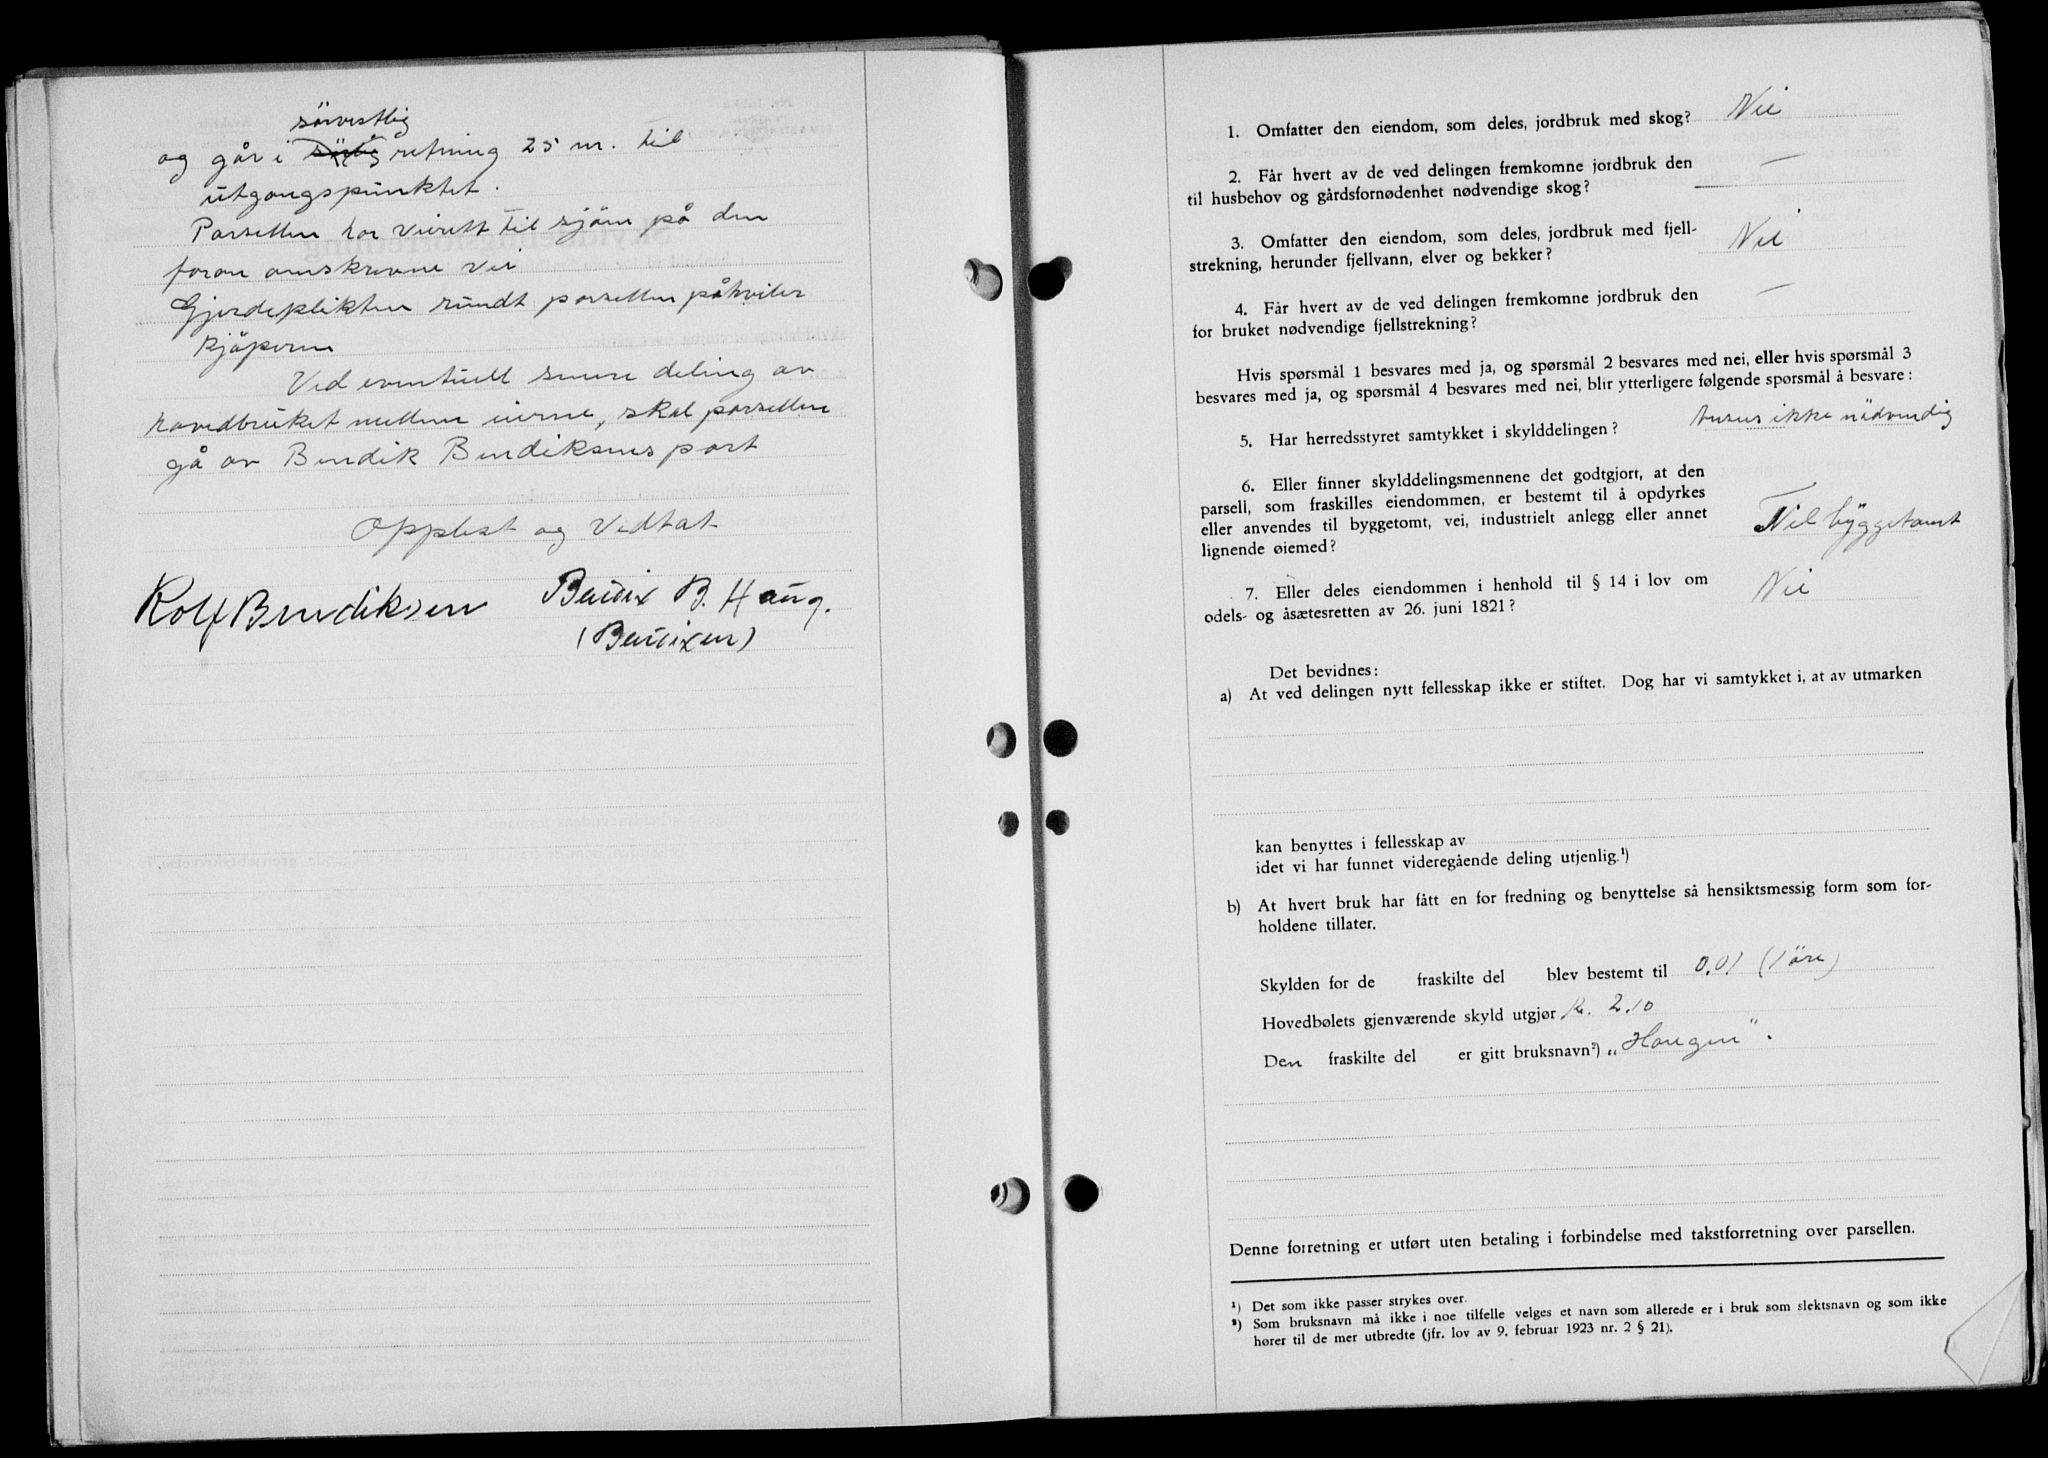 sörvestlig
og går i sörlig retning 25 m. til
utgangspunktet.
Parsellen har veirett til sjöen på den
foran omskrevne vei
Gjerdeplikten rundt parsellen påhviler
kjöperne
Ved eventuell senere deling av
hovedbruket mellem eierne, skal parsellen
gå av Bendik Bendiksens part
Opplest og Vedtat
Rolf Bendiksen Bendix B. Haug.
(Bendixen)
1. Omfatter den eiendom, som deles, jordbruk med skog? Nei
2. Får hvert av de ved delingen fremkomne jordbruk den
til husbehov og gårdsfornødenhet nødvendige skog? —
3. Omfatter den eiendom, som deles, jordbruk med fjell-
strekning, herunder fjellvann, elver og bekker? Nei
4. Får hvert av de ved delingen fremkomne jordbruk den
for bruket nødvendige fjellstrekning? —
Hvis spørsmål 1 besvares med ja, og spørsmål 2 besvares med nei, eller hvis spørsmål 3
besvares med ja, og spørsmål 4 besvares med nei, blir ytterligere følgende spørsmål å besvare:
5. Har herredsstyret samtykket i skylddelingen? Ansees ikke nödvendig
6. Eller finner skylddelingsmennene det godtgjort, at den
parsell, som fraskilles eiendommen, er bestemt til å opdyrkes
eller anvendes til byggetomt, vei, industrielt anlegg eller annet
lignende øiemed? Til byggetomt
7. Eller deles eiendommen i henhold til § 14 i lov om
odels- og åsætesretten av 26. juni 1821? Nei
Det bevidnes:
a) At ved delingen nytt fellesskap ikke er stiftet. Dog har vi samtykket i, at av utmarken
kan benyttes i fellesskap av
idet vi har funnet videregående deling utjenlig.¹)
b) At hvert bruk har fått en for fredning og benyttelse så hensiktsmessig form som for-
holdene tillater.
Skylden for de fraskilte del blev bestemt til 0,01 (1 öre)
Hovedbølets gjenværende skyld utgjør kr. 2.10
Den fraskilte del er gitt bruksnavn²) „Haugen".
Denne forretning er utført uten betaling i forbindelse med takstforretning over parsellen.
¹) Det som ikke passer strykes over.
²) Som bruksnavn må ikke i noe tilfelle velges et navn som allerede er i bruk som slektsnavn og som ikke
hører til de mer utbredte (jfr. lov av 9. februar 1923 nr. 2 § 21).